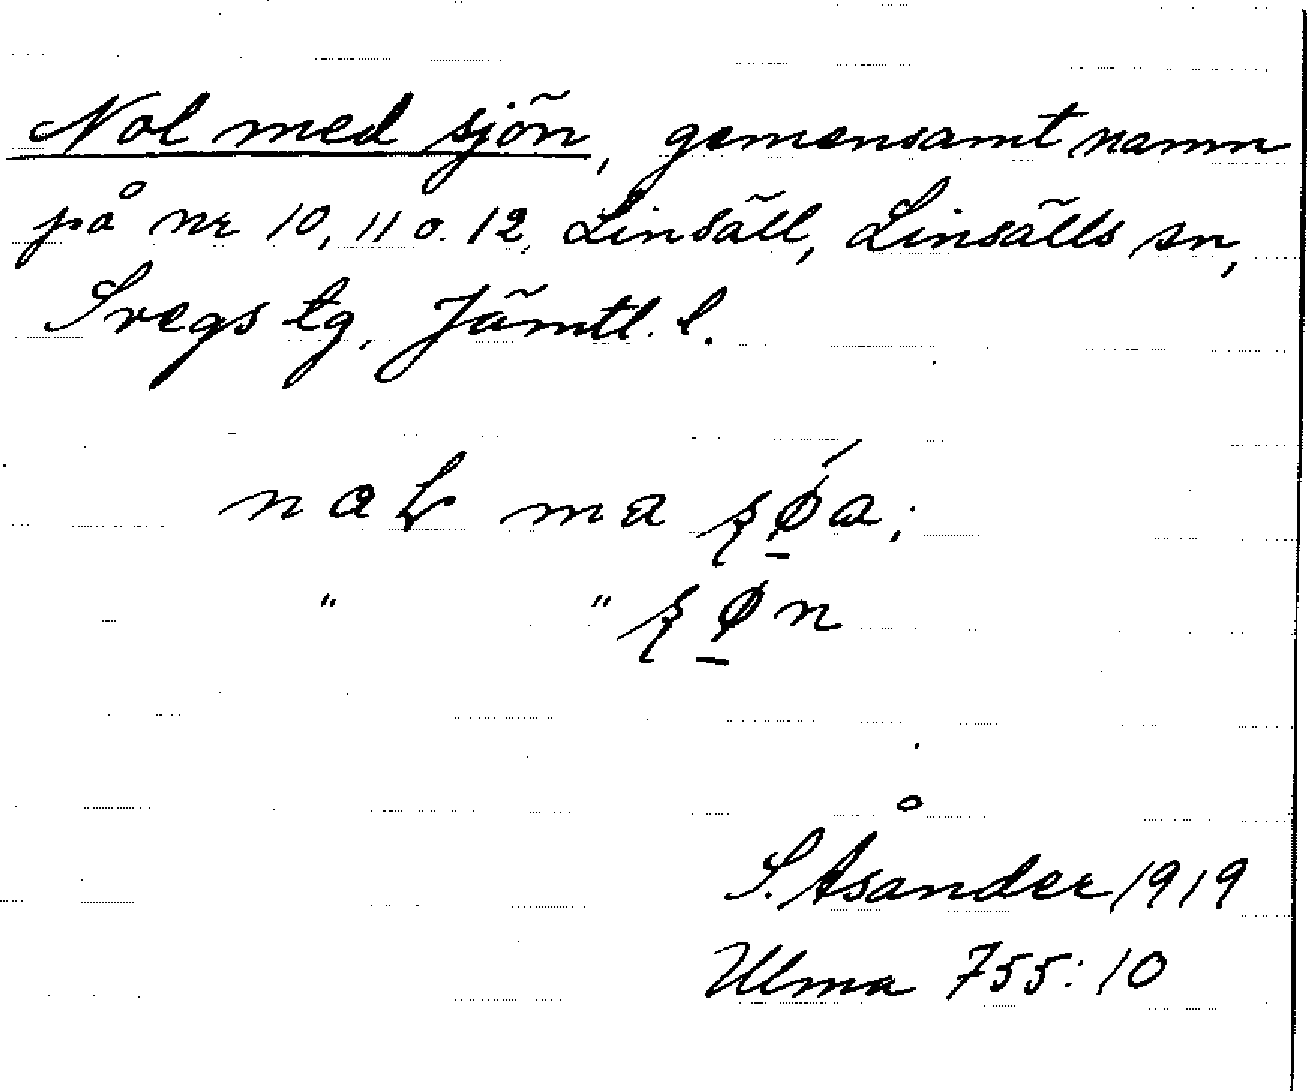 Nol med sjön, gemensamt namn
på nr 10, 11 o. 12, Linsäll, Linsälls sn,
Svegs tg, Jämtl. l.
S. Åsander 1919
Ulma 755:10